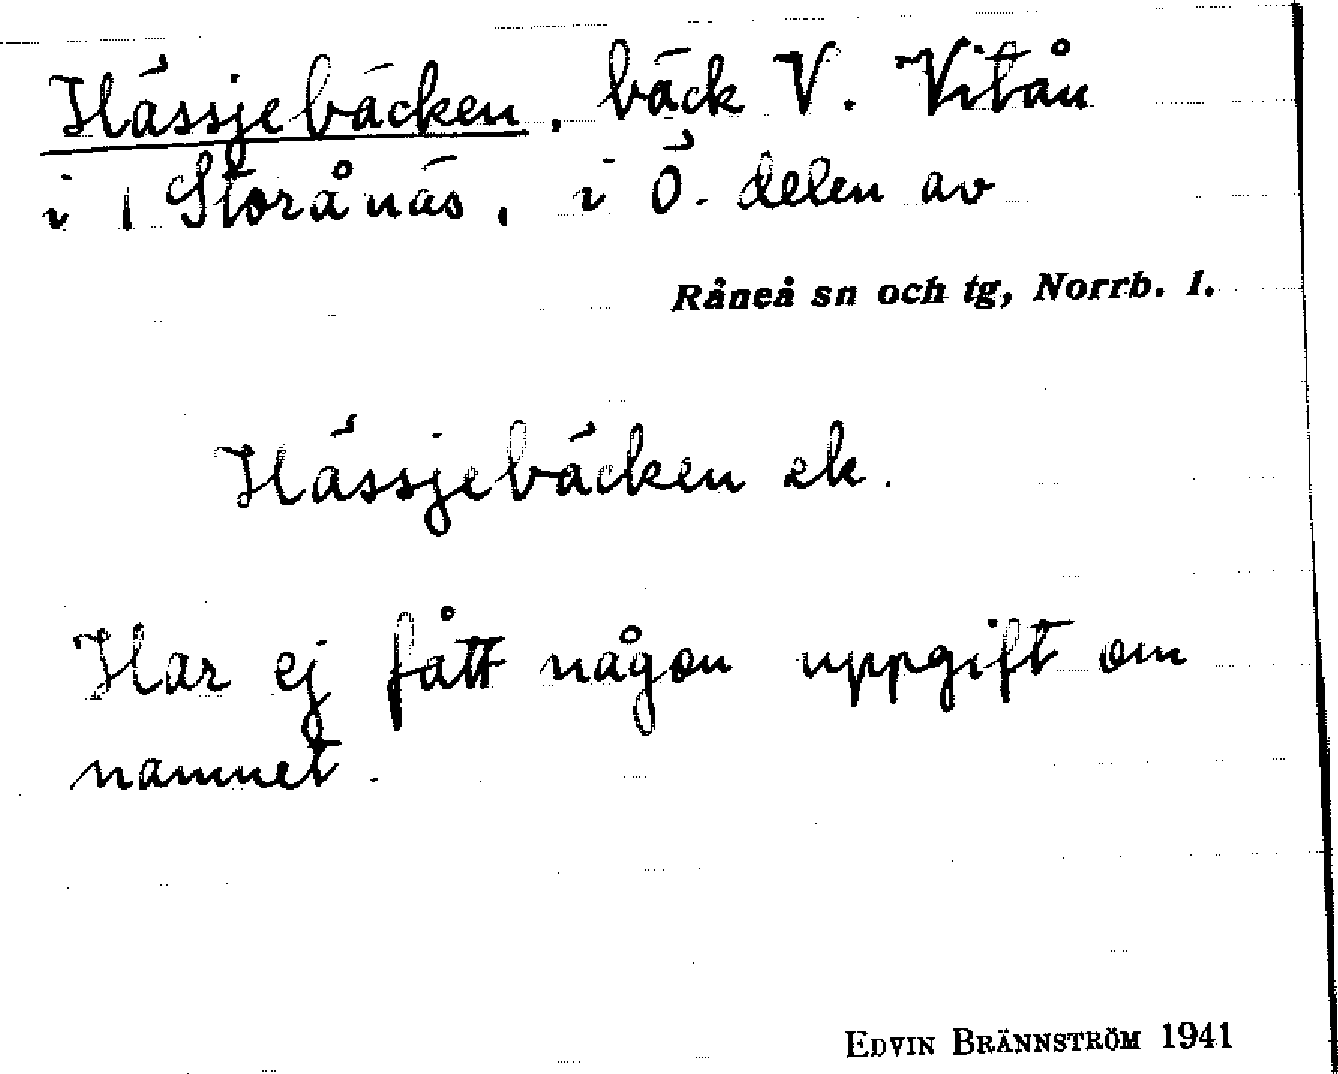 Hässjebäcken, bäck V. Vitån
i Storånäs, i Ö. delen av
Råneå sn och tg, Norrb. l.
Hässjebäcken ek.
Har ej fått någon uppgift om
namnet.
EDVIN BRÄNNSTRÖM 1941